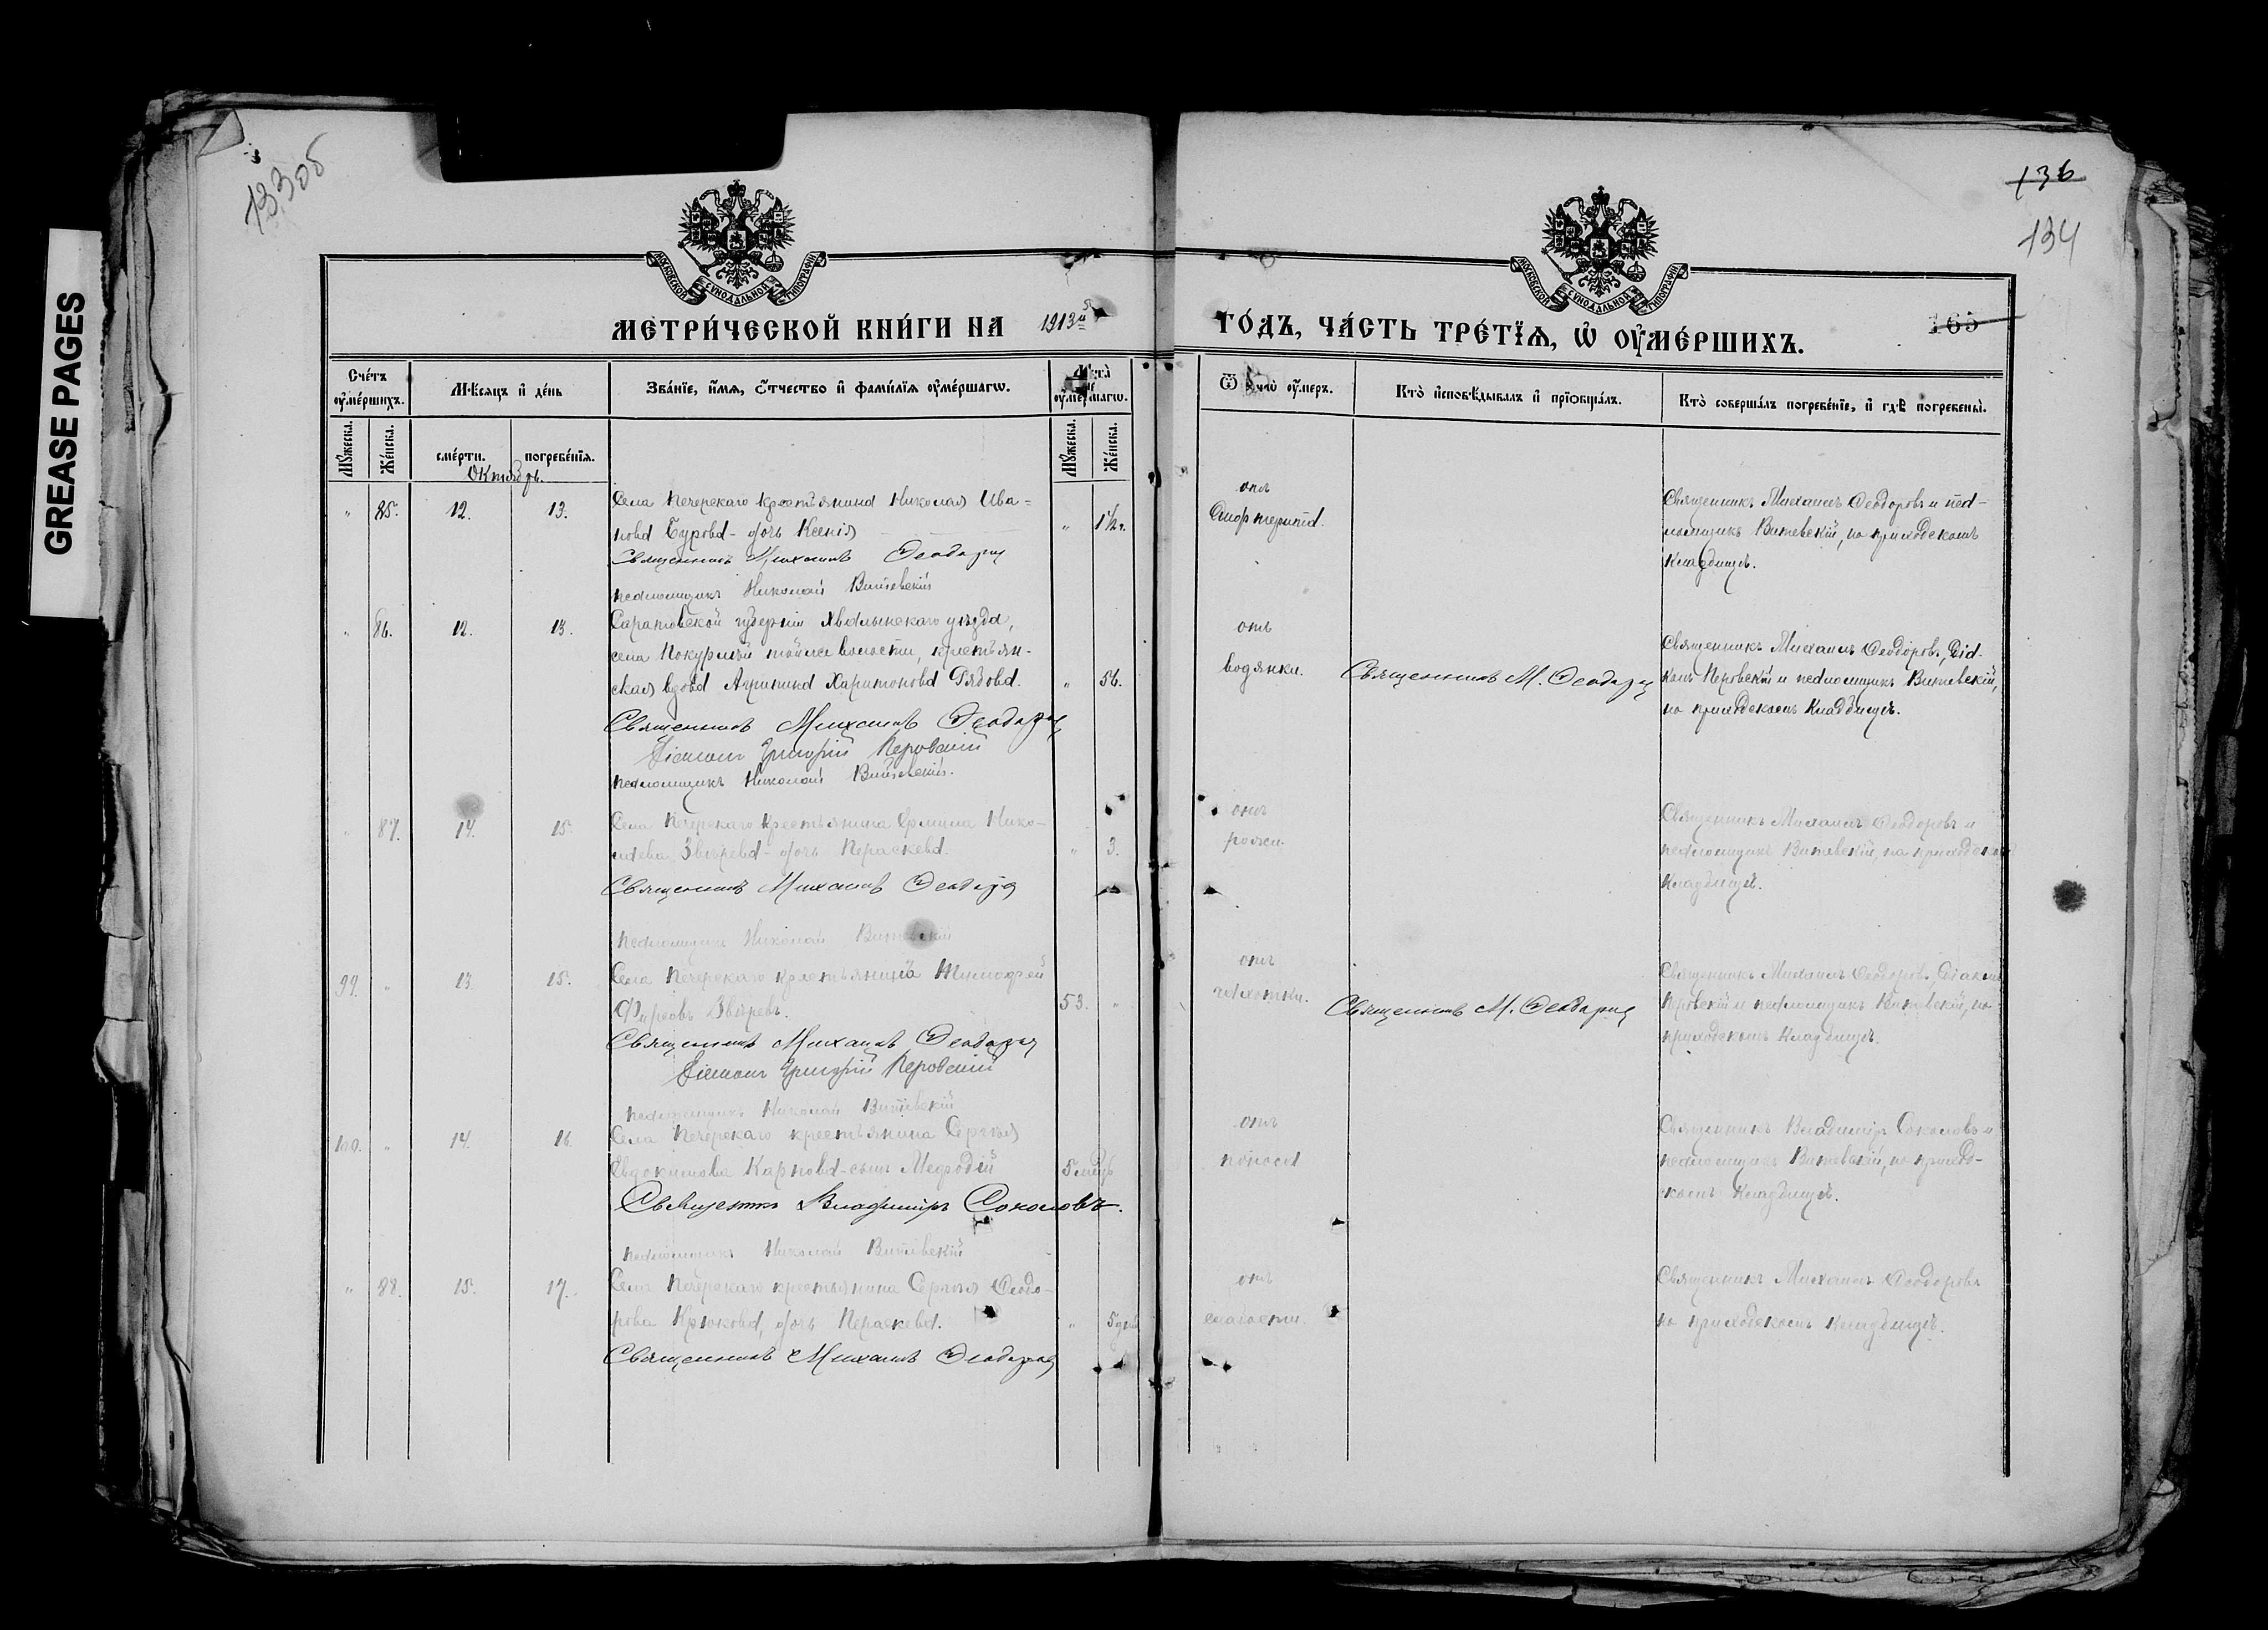 GREASE PAGES
133об
136
134
МОСКОВСКОЙ СѴНОДАЛЬНОЙ ТИПОГРАФІИ
МОСКОВСКОЙ СѴНОДАЛЬНОЙ ТИПОГРАФІИ
МЕТРИ́ЧЕСКОЙ КНИ́ГИ НА 1913й
ГО́ДЪ, ЧА́СТЬ ТРЕ́ТЇѦ, Ѡ҆ ОУ҆МЕ́РШИХЪ.
165
Сче́тъ оу҆ме́ршихъ.
Мѣ́сяцъ и҆ де́нь
Зва́нїе, и҆́мѧ, ѻ҆́тчество и҆ фами́лїѧ оу҆ме́ршагѡ.
Лѣ́та оу҆ме́ршагѡ.
Ѿ чегѡ̀ оу҆́меръ.
Кто̀ и҆сповѣ́дывалъ и҆ прїѡбща́лъ.
Кто̀ соверша́лъ погребе́нїе, и҆ гдѣ̀ погребены̀.
Му́жеска.
Же́нска.
сме́рти.
погребе́нїѧ.
Му́жеска.
Же́нска.
Октябрь.
" 85. 12. 13. Села Печерскаго крестьянина Николая Ива=
нова Бурова - дочь Ксенія " 1½ г.
Священникъ Михаилъ Ѳеодоровъ
псаломщикъ Николай Витевскій
отъ
Священникъ Михаилъ Ѳеодоровъ и псал-
ломщикъ Витевскій, на приходскомъ
кладбищѣ.
" 86. 12. 13. Саратовской губерніи Хвалынскаго уѣзда,
села Покурлей тойже волости, крестьян-
ская вдова Агрипина Харитонова Рядова. " 56.
Священникъ Михаилъ Ѳеодоровъ
Діаконъ Григорій Перовскій
псаломщикъ Николай Витевскій.
отъ
водянки.
Священникъ М. Ѳеодоровъ
Священникъ Михаилъ Ѳеодоровъ, Діа-
конъ Перовскій и псаломщикъ Витевскій,
на приходскомъ кладбищѣ.
" 87. 14. 15. Села Печерскаго крестьянина Ермила Нико-
лаева Звѣрева - дочь Параскева. " 3.
Священникъ Михаилъ Ѳеодоровъ
псаломщикъ Николай Витевскій
отъ
рожи.
Священникъ Михаилъ Ѳеодоровъ и
псаломщикъ Витевскій, на приходскомъ
кладбищѣ.
99. " 13. 15. Села Печерскаго крестьянинъ Тимофей
Фирсовъ Звѣревъ. 53. "
Священникъ Михаилъ Ѳеодоровъ
Діаконъ Григорій Перовскій
псаломщикъ Николай Витевскій
отъ
чахотки.
Священникъ М. Ѳеодоровъ
Священникъ Михаилъ Ѳеодоровъ, Діаконъ
Перовскій и псаломщикъ Витевскій, на
приходскомъ кладбищѣ.
100. " 14. 16. Села Печерскаго крестьянина Сергѣя
Евдокимова Карпова - сынъ Меѳодій 5 мѣс
Священникъ Владиміръ Соколовъ.
псаломщикъ Николай Витевскій
отъ
поноса
Священникъ Владиміръ Соколовъ и
псаломщикъ Витевскій, на приход-
скомъ кладбищѣ.
" 88. 15. 17. Села Печерскаго крестьянина Сергѣя Ѳеодо-
рова Крюкова, дочь Параскева. " 5 дней
Священникъ Михаилъ Ѳеодоровъ
отъ
слабости.
Священникъ Михаилъ Ѳеодоровъ
на приходскомъ кладбищѣ.